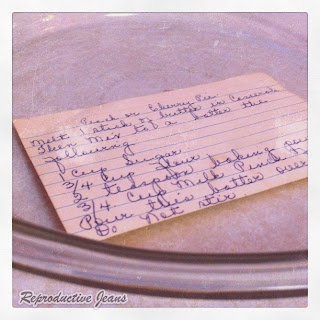 Peach or Cherry Pie
Melt 1 stick of butter in Casserole
Then Mix to a batter the
following
1 cup Sugar
3/4 Cup flour
2 teaspoons baking
3/4 Cup Milk Pinch
Pour this batter over
Do Not stir
Reproductive Jeans